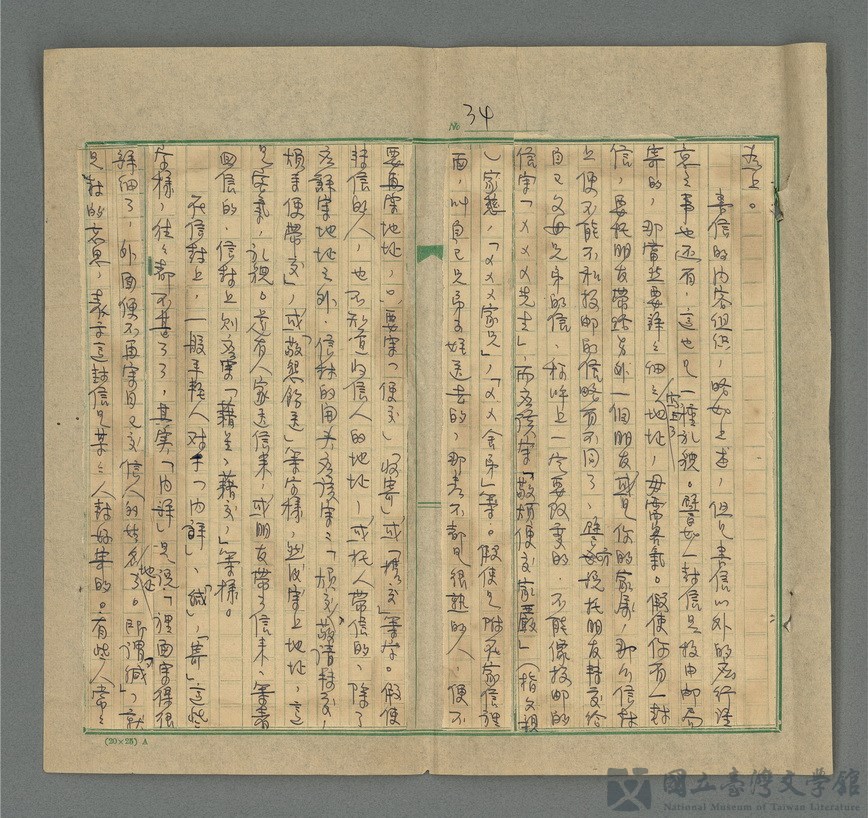 № 34
為上。
書信的內容組織，略如上述，但是書信以外的應行注
意之事也還有，這也是一種禮貌。譬如一封信是投由郵局
寄的，那當然要詳詳細細之地址，毋需客氣。假使你有一封
信，要托朋友帶路另外一個朋友或是你的家屬，那麼信封
上便不能不和投郵的信略有不同了，譬方說托朋友轉交給
自己父母兄弟的信，稱呼上一定要改變的，不能像投郵的
信寫「×××先生」，而應該寫「敬煩便交家嚴」（指父親
）家慈，「×××家兄」，「××舍弟」等。假使是附在家信裡
面，叫自己兄弟子姪送去的，那麼不都是很熟的人，便不
要再寫地址，只要寫「便交」「收寄」或「携交」等字。假使
轉信的人，也不知道收信人的地址，或托人帶信的，除了
應詳寫地址之外，信封的開头應該寫：「煩交」「敬請轉交」，
煩手便帶交」，或「敬懇飭送」等字樣，然後寫上地址，這
是客氣，礼貌。還有人家送信來，或朋友帶了信來，等着
回信的，信封上則應寫「藉呈、藉交」等字樣。
在信封上，一般平輩人对于「內詳」、「緘」，「寄」這些
字樣，往往都不甚了了，其實，「內詳」是說：「裡面寫得很
詳細了，外面便不再寫自己交信人的姓名地址了。即謂「緘」，就
是封的意思，表示這封信是某某人封好寄的。有些人常常
(20×25) A
國立臺灣文學館
National Museum of Taiwan Literature